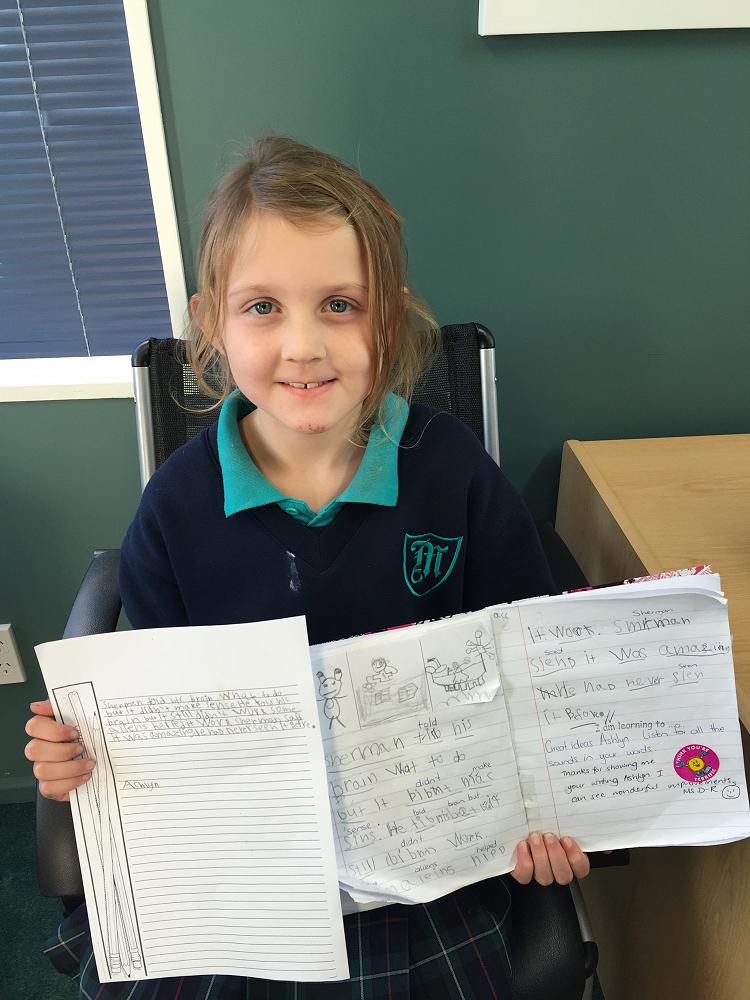 Sherman told his brain what to do
but it didn't make sense. He told his
brain but it still didn't work some
aliens helped it work Sherman said
it was amazing he had never seen it before.
Ashlyn
told
sherman his
brain what to do
didn't make
but it
sense.
told brain but
sins. He
didn't
still work
aliens helped
Sherman
it work.
Said
it was
seen
had never
it Before
I am learning to
Great ideas Ashlyn. Listen for all the
sounds in your words.
Thanks for showing me
your writing Ashlyn I
can see wonderful improvements.
MS D-R
I THINK YOU'RE
TERRIFIC
M